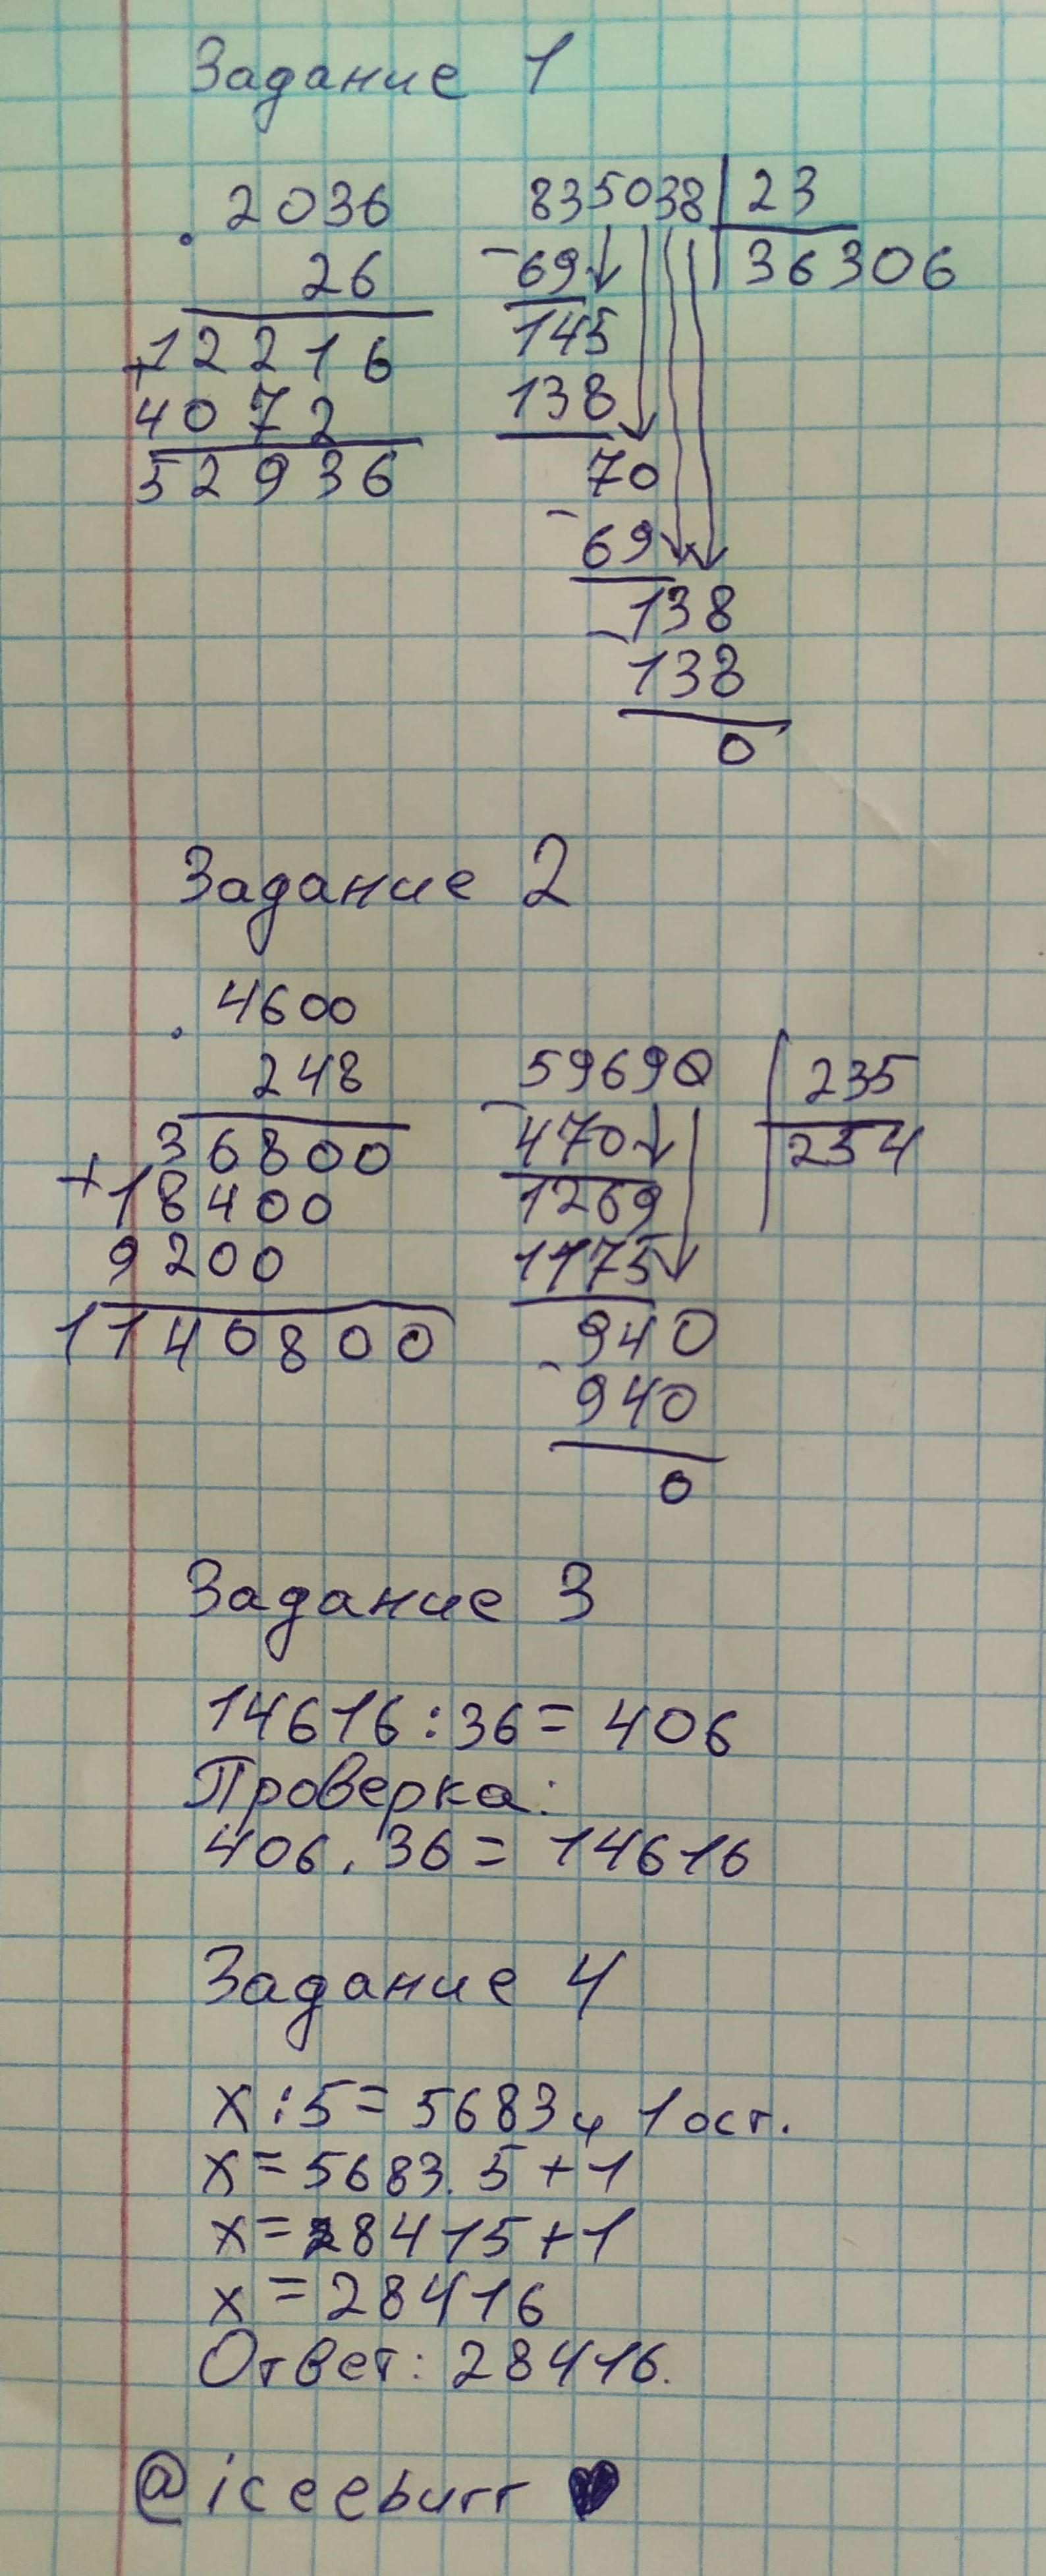 Задание 1
. 2036
26
+12216
4072
52936
835038 23
-69 36306
145
138
70
-69
-138
138
0
Задание 2
. 4600
248
+36800
18400
9200
1140800
-59690 235
470 254
1269
1175
-940
940
0
Задание 3
14616:36=406
Проверка:
406.36=14616
Задание 4
x:5=5683 и 1 ост.
x=5683.5+1
x=28415+1
x=28416
Ответ: 28416.
@iceeburr ♥